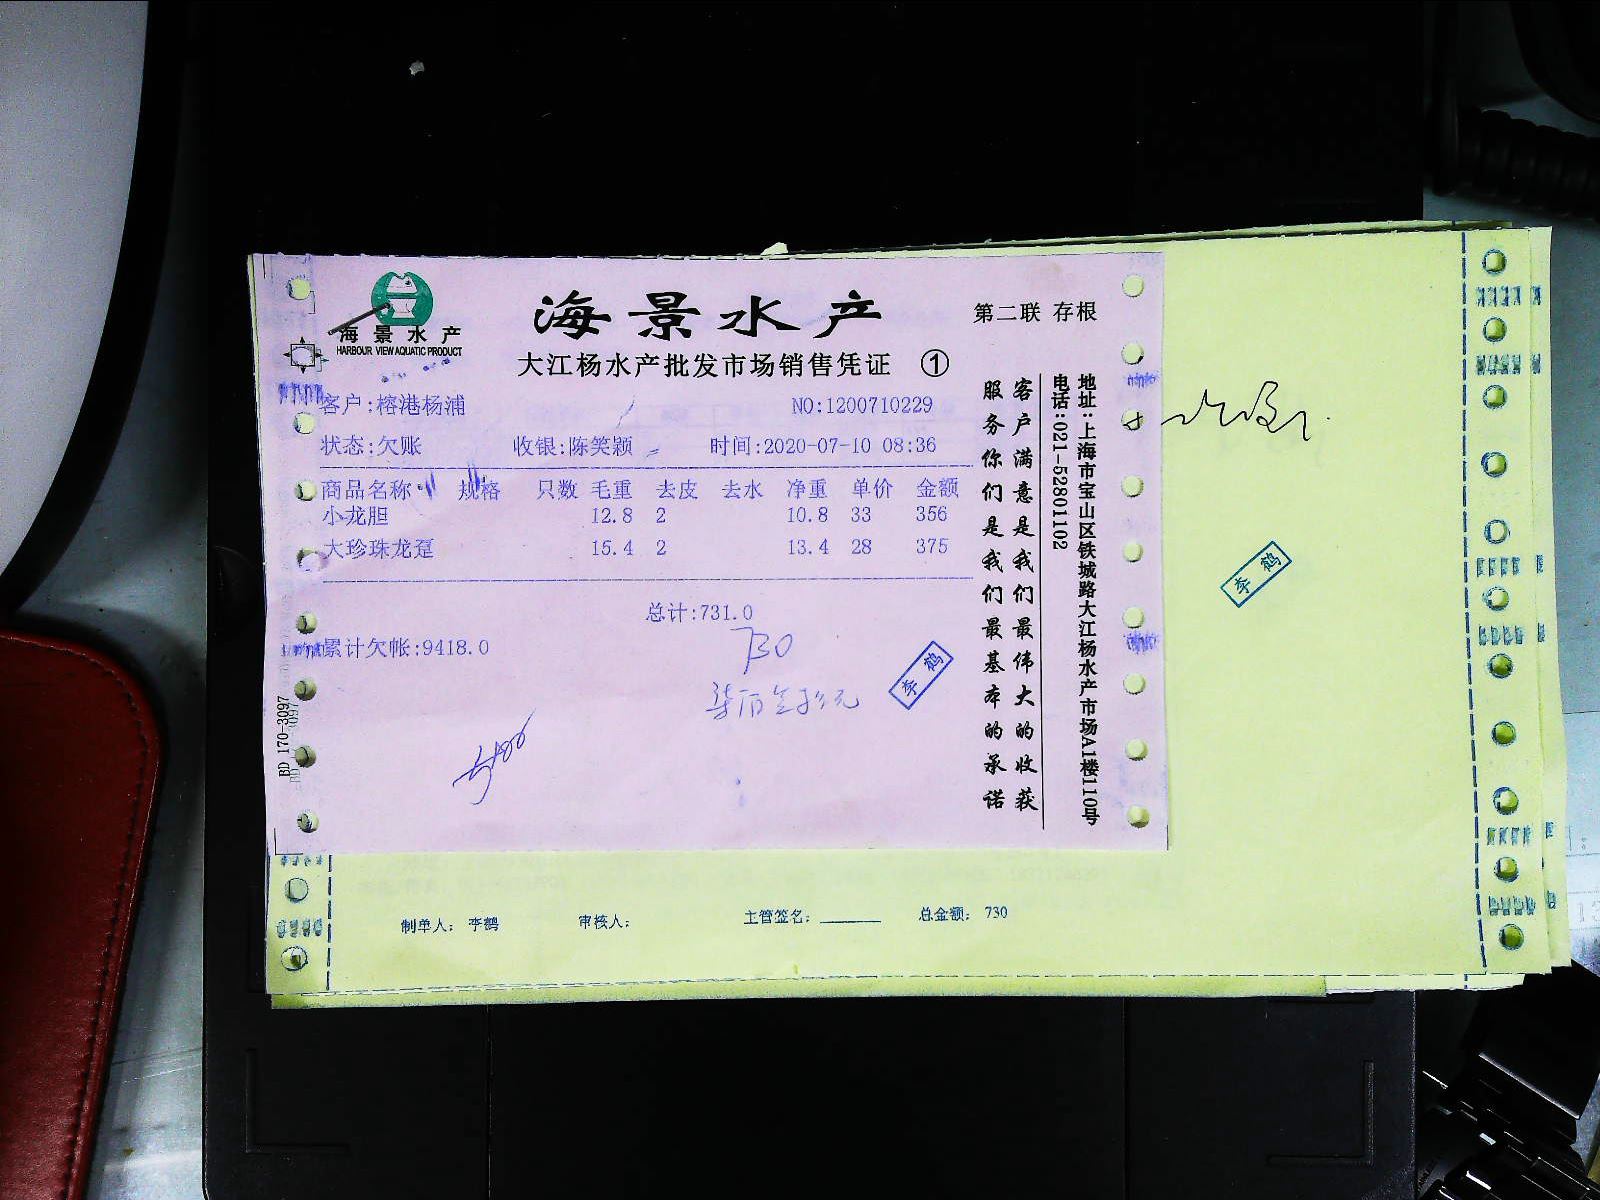 海景水产
HARBOUR VIEW AQUATIC PRODUCT
海景水产
第二联 存根
大江杨水产批发市场销售凭证 ①
客户:榕港杨浦 NO:1200710229
状态:欠账 收银:陈笑颖 时间:2020-07-10 08:36
商品名称 规格 只数 毛重 去皮 去水 净重 单价 金额
小龙胆 12.8 2 10.8 33 356
大珍珠龙趸 15.4 2 13.4 28 375
总计:731.0
730
累计欠帐:9418.0
柒佰叁拾元
李鹤
客户满意是我们最伟大的收获
服务你们是我们最基本的承诺
地址:上海市宝山区铁城路大江杨水产市场A1楼110号
电话:021-52801102
BD 170-3097
李鹤
制单人: 李鹤 审核人: 主管签名: 总金额: 730